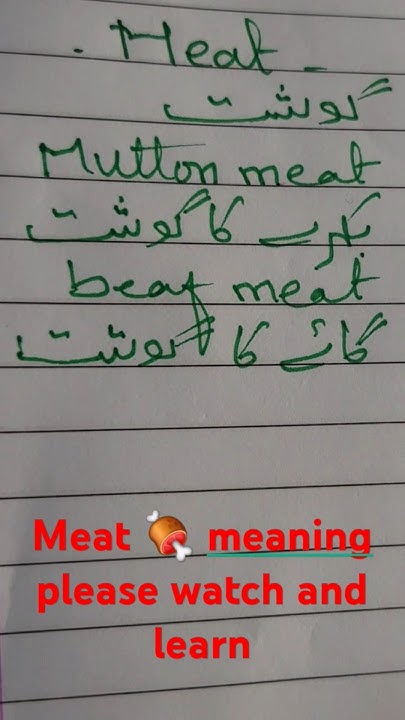 . Meat -
گوشت
Mutton meat
بکرے کا گوشت
beaf meat
گائے کا گوشت
Meat 🍖 meaning
please watch and
learn